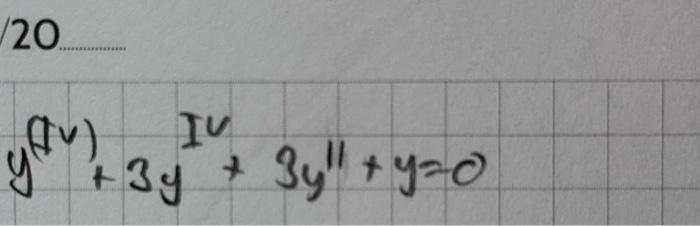 /20............
y^(IV) + 3y^IV + 3y'' + y = 0